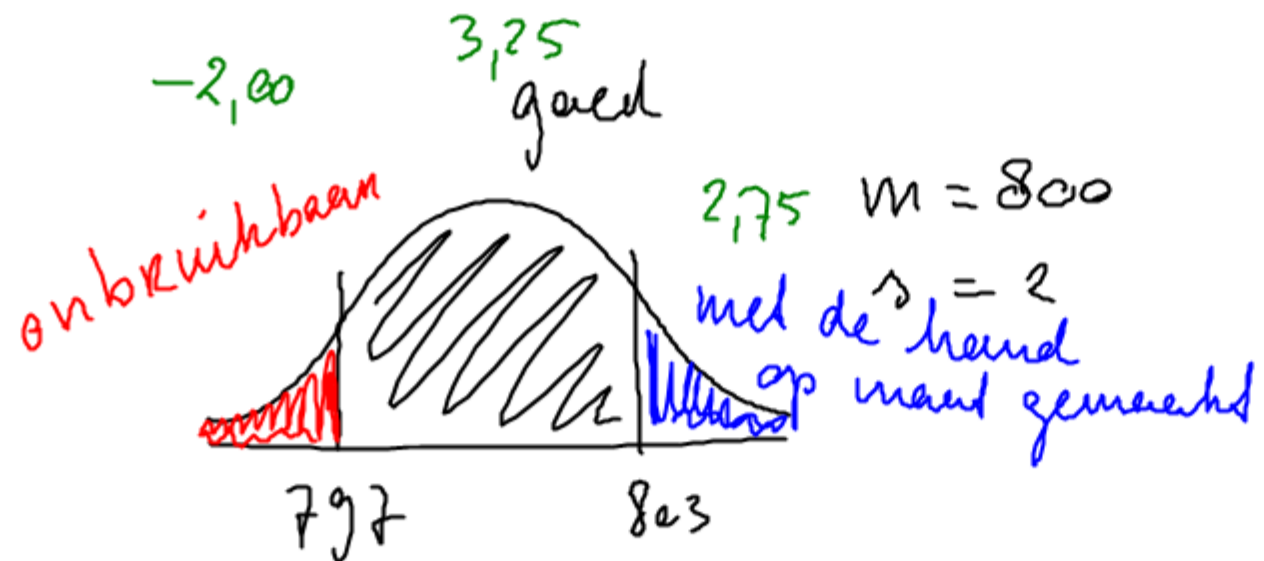 3,25
-2,00
goed
onbruikbaar
2,75
m = 800
s = 2
met de hand
op maat gemaakt
797
803